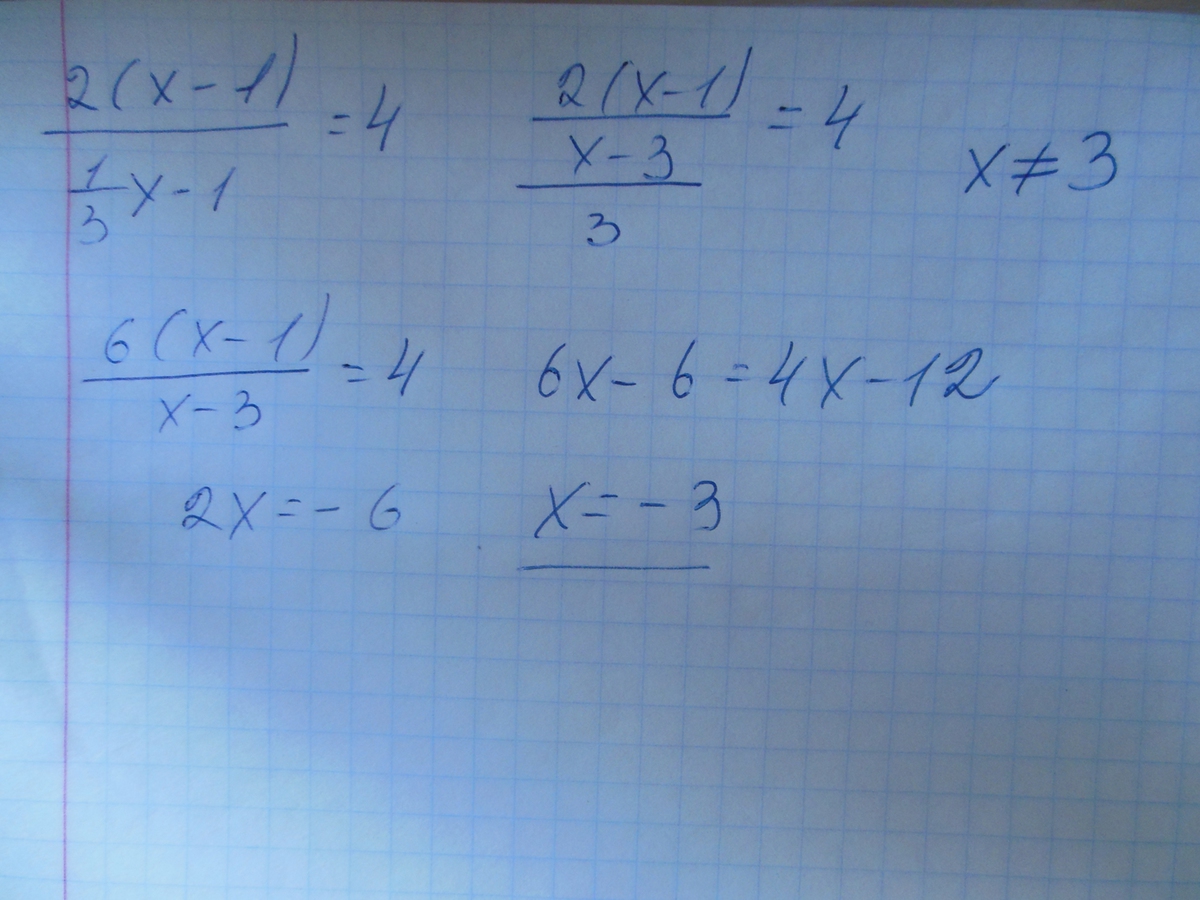 2(x-1)/(1/3 x-1) =4   2(x-1)/((x-3)/3) =4   x≠3
6(x-1)/(x-3) =4   6x-6=4x-12
2x=-6   x=-3